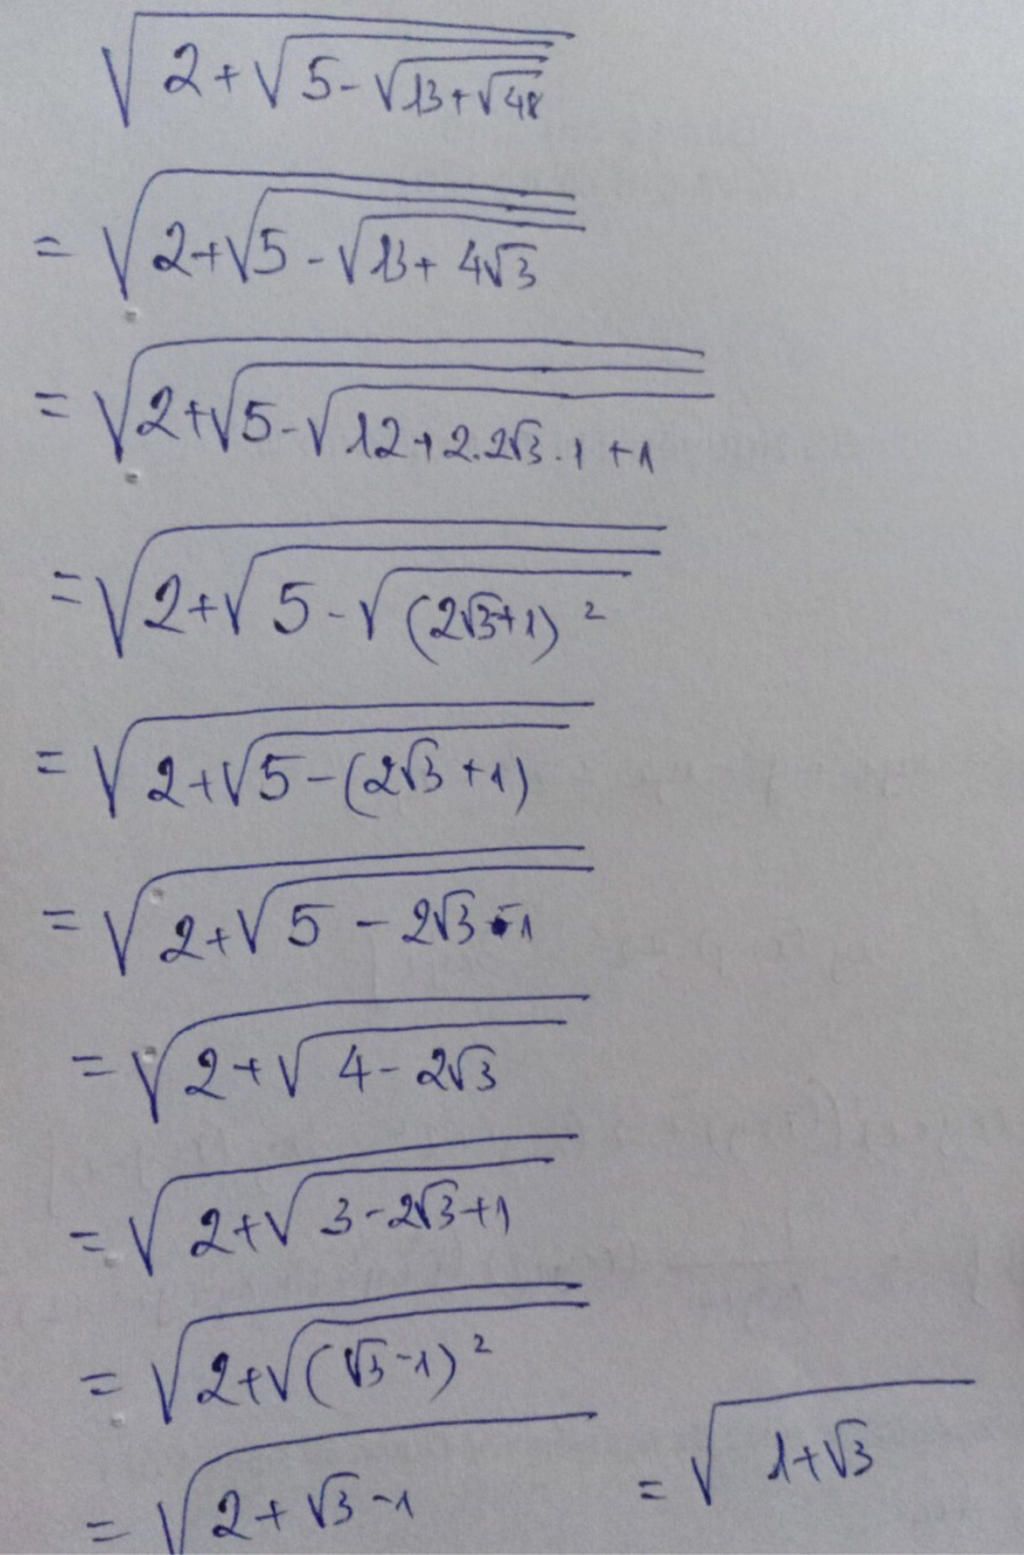 √(2+√(5-√(13+√48)))
= √(2+√(5-√(13+4√3)))
= √(2+√(5-√(12+2.2√3.1+1)))
= √(2+√(5-√((2√3+1)²)))
= √(2+√(5-(2√3+1)))
= √(2+√(5-2√3-1))
= √(2+√(4-2√3))
= √(2+√(3-2√3+1))
= √(2+√((√3-1)²))
= √(2+√3-1) = √(1+√3)